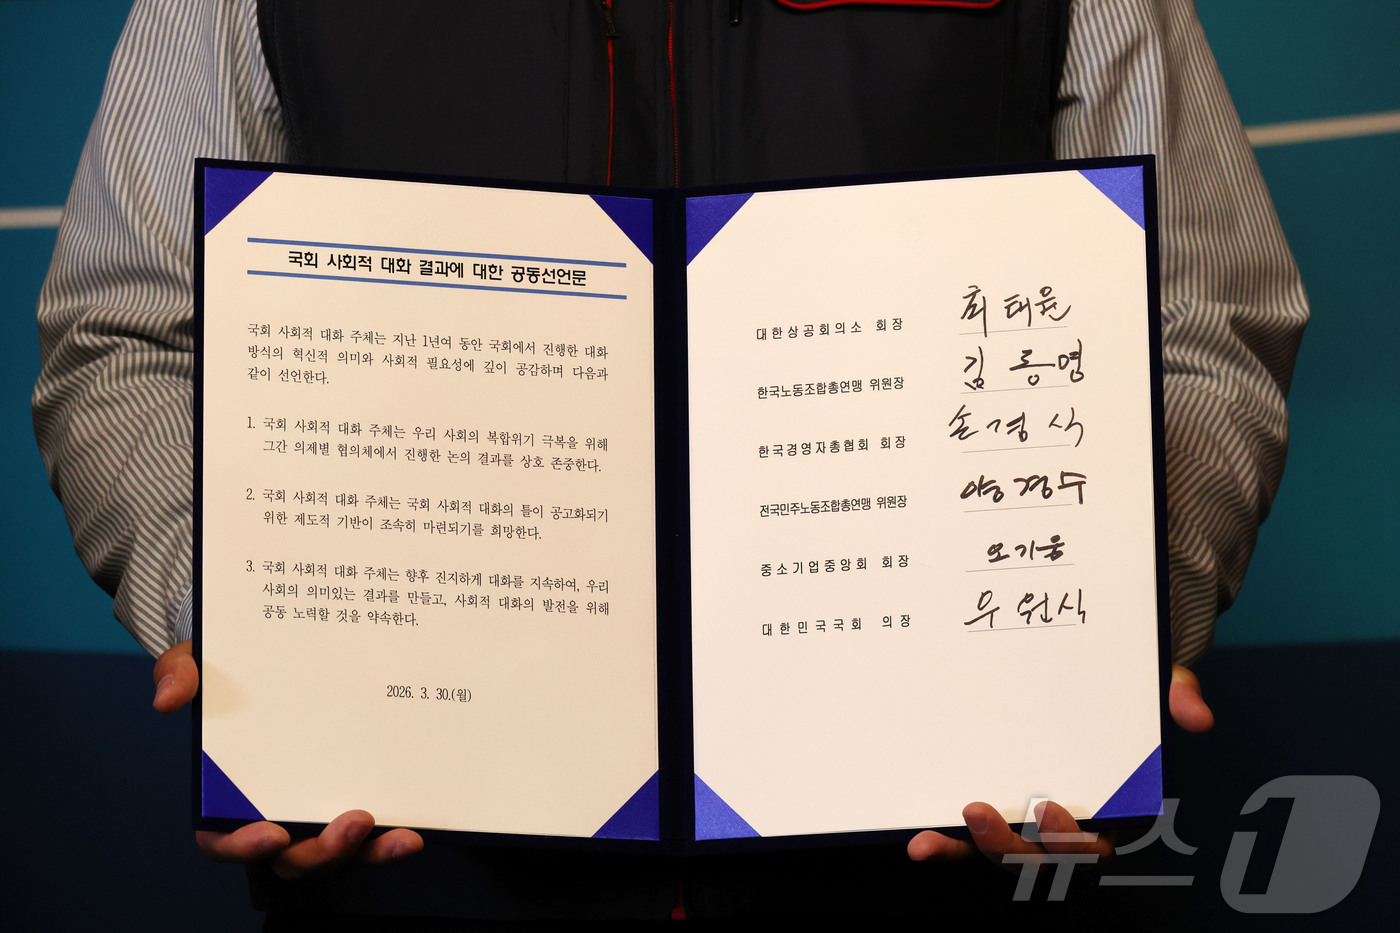 국회 사회적 대화 결과에 대한 공동선언문
국회 사회적 대화 주체는 지난 1년여 동안 국회에서 진행한 대화
방식의 혁신적 의미와 사회적 필요성에 깊이 공감하며 다음과
같이 선언한다.
1. 국회 사회적 대화 주체는 우리 사회의 복합위기 극복을 위해
그간 의제별 협의체에서 진행한 논의 결과를 상호 존중한다.
2. 국회 사회적 대화 주체는 국회 사회적 대화의 틀이 공고화되기
위한 제도적 기반이 조속히 마련되기를 희망한다.
3. 국회 사회적 대화 주체는 향후 진지하게 대화를 지속하여, 우리
사회의 의미있는 결과를 만들고, 사회적 대화의 발전을 위해
공동 노력할 것을 약속한다.
2026. 3. 30.(월)
대한상공회의소 회장 최태원
한국노동조합총연맹 위원장 김동명
한국경영자총협회 회장 손경식
전국민주노동조합총연맹 위원장 양경수
중소기업중앙회 회장 오기웅
대한민국국회 의장 우원식
뉴스1